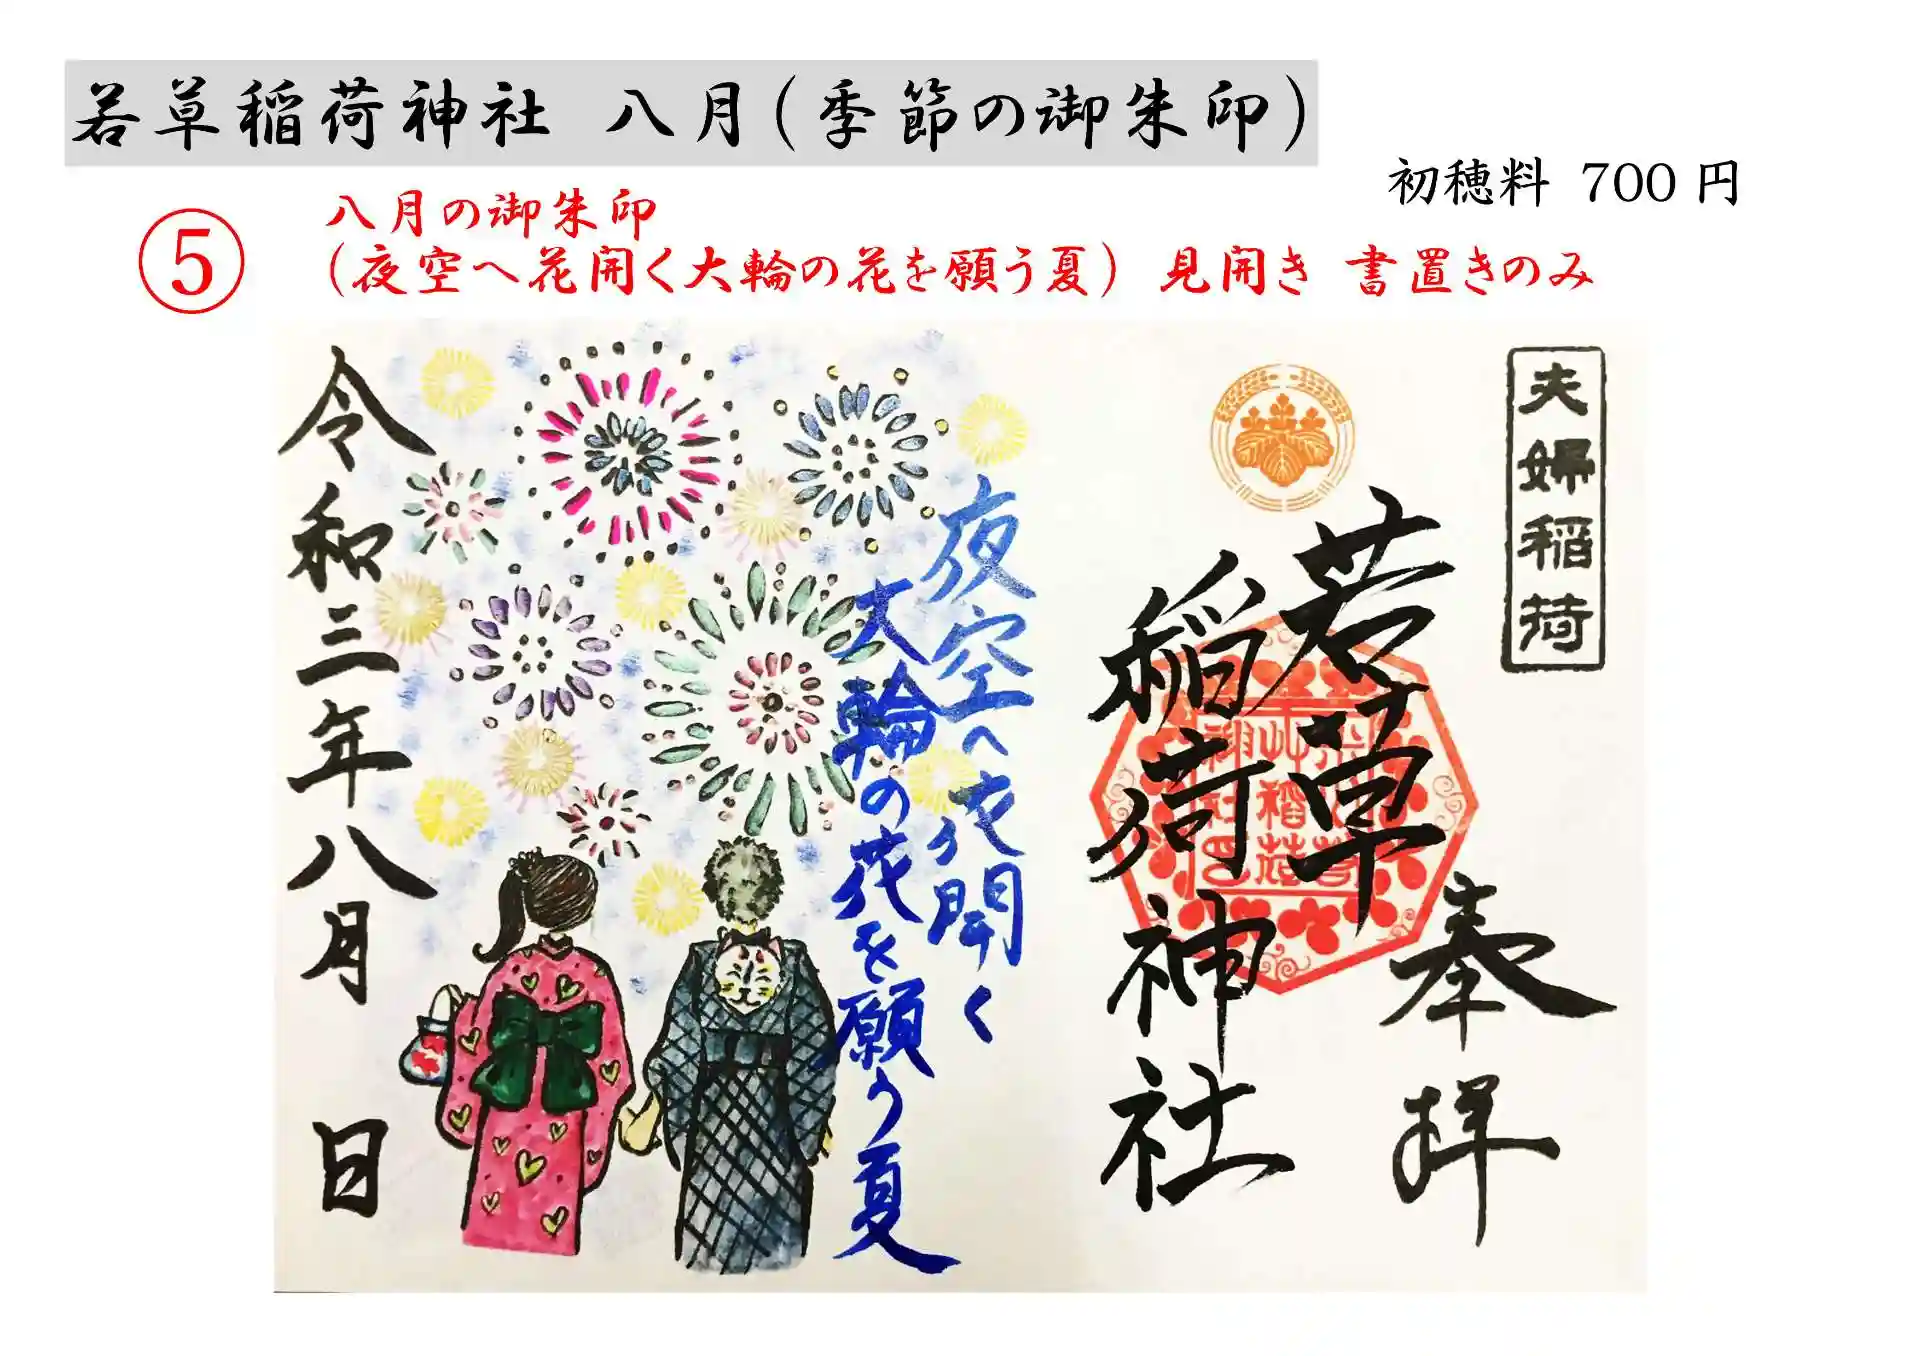 若草稲荷神社 八月(季節の御朱印)
初穂料 700 円
⑤
八月の御朱印
(夜空へ花開く大輪の花を願う夏) 見開き 書置きのみ
夫婦稲荷
奉拝
若草
稲荷神社
夜空へ花開く
大輪の花を願う夏
令和三年八月 日